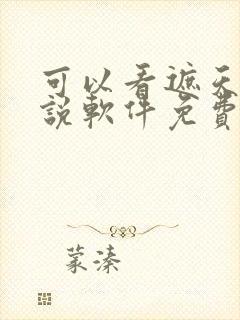 可以看遮天
說軟件免費
蒙溱